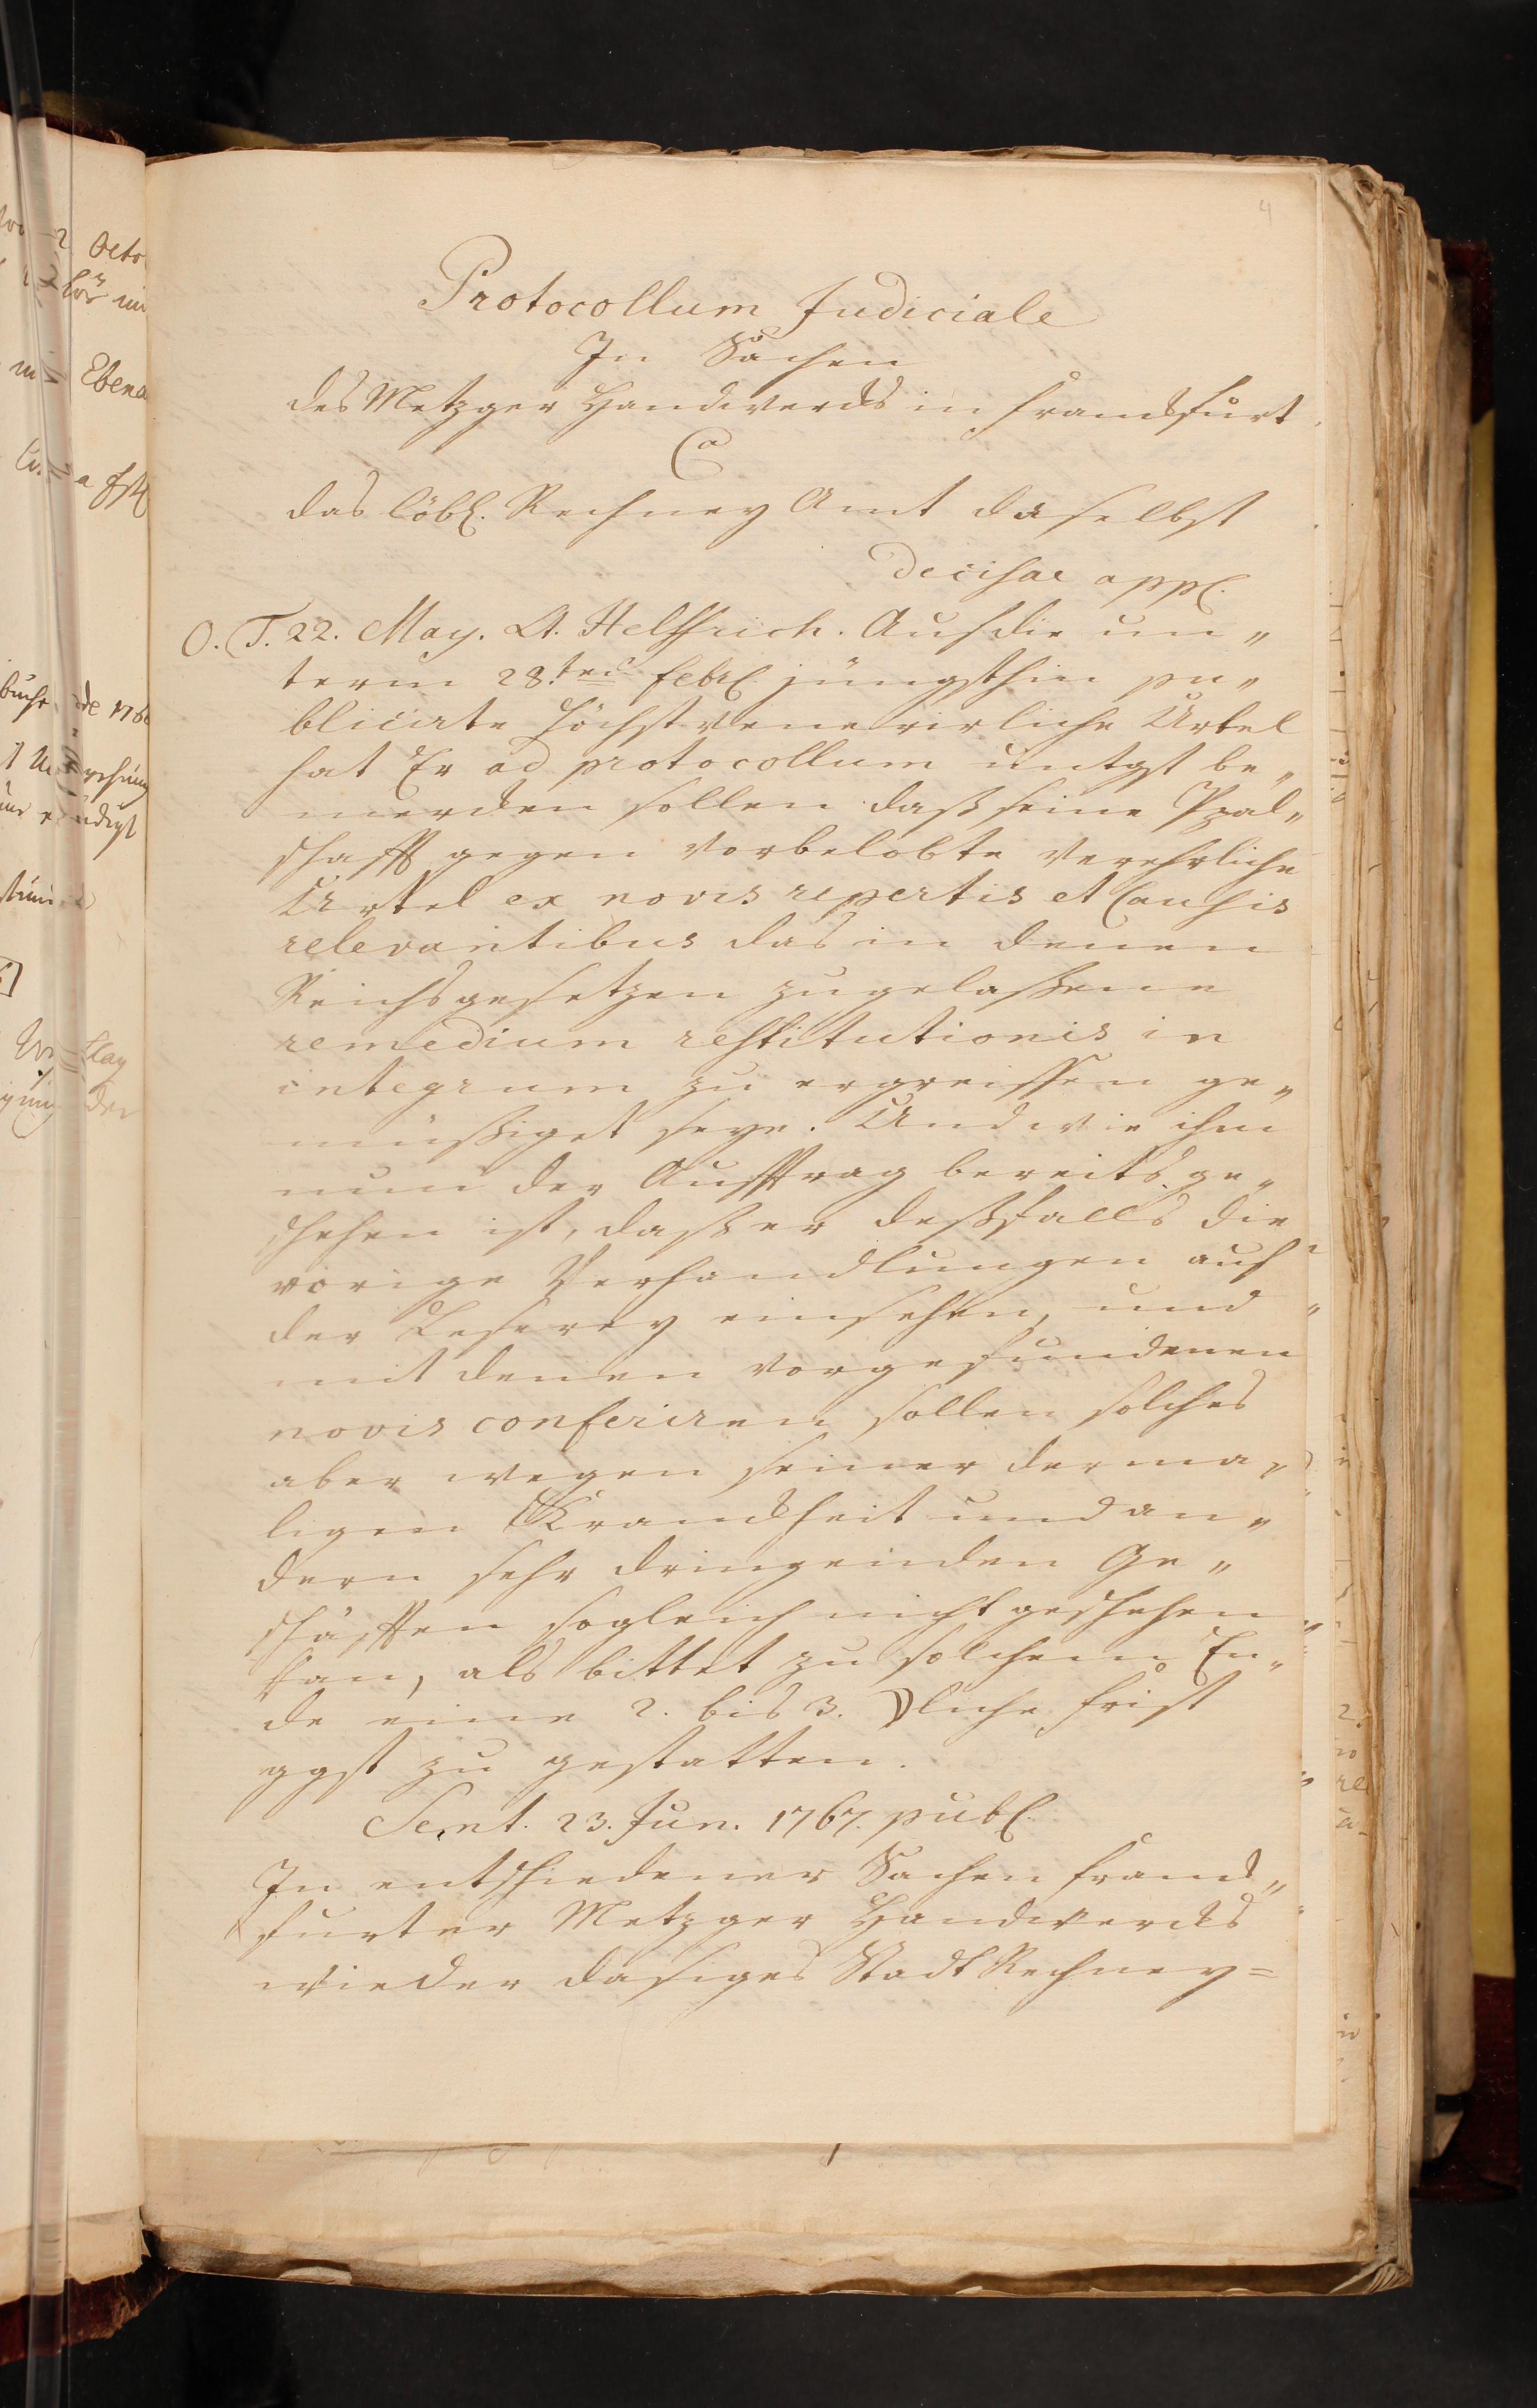 4
Protocollum Judiciale
In Sachen
des Metzger Handwercks in Franckfurt
Ca
das löbl. Rechney Amt daselbst
decisae appl.
O. T. 22. May. Lt. Helffrich. Auf die un„
term 28.ten Febr. jüngsthin pu„
blicirte höchst venerirliche Urtel
hat Er ad protocollum untgst be„
mercken sollen daß seine Pzal„
schafft gegen vorbelobte verehrliche
Urtel ex novis repertis et Causis
relevantibus das in denen
Reichsgesetzen zugelaßene
remedium restitutionis in
integrum zu ergreiffen ge„
müßiget seye. Und wie ihm
nun der Aufftrag bereits ge„
schehen ist, daß er deßfalls die
vorige Verhandlungen auf
der Leserey einsehen, und
mit denen vorgefundenen
novis conferiren sollen solches
aber wegen seiner derma„
ligen Kranckheit und an„
dern sehr dringenden Ge„
schäfften sogleich nicht geschehen
kan, als bittet zu solchem En„
de eine 2. bis 3. liche Frist
ggst zu gestatten.
Sent. 23. Jun. 1767. publ.
In entschiedener Sachen Franck„
furter Metzger Handwercks
wieder dasiges Stadt Rechney=